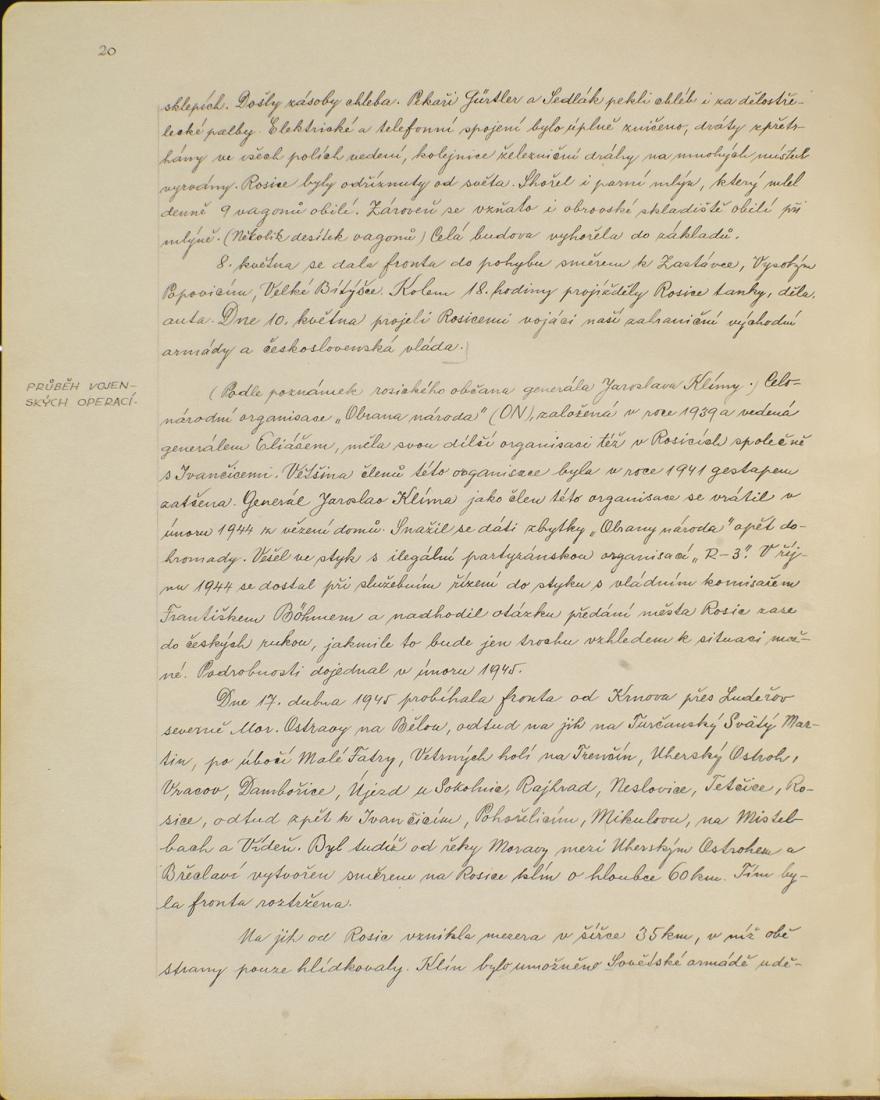 20
sklepích. Došly zásoby chleba. Pekaři Gürtler a Sedlák pekli chléb i za dělostře-
lecké palby. Elektrické a telefonní spojení bylo úplně zničeno, dráty zpřetr-
hány ve všech polích vedení, kolejnice železniční dráhy na mnohých místech
vyrvány. Rosice byly odříznuty od světa. Shořel i parní mlýn, který mlel
denně 9 vagonů obilí. Zároveň se vzňalo i obrovské skladiště obilí při
mlýně. (Několik desítek vagonů) Celá budova vyhořela do základů.
8. května se dala fronta do pohybu směrem k Zastávce, Vysokým
Popovicím, Velké Bítýšce. Kolem 18. hodiny projížděly Rosice tanky, děla,
auta. Dne 10. května projeli Rosicemi vojáci naší zahraniční východní
armády a československá vláda.
PRŮBĚH VOJEN-
SKÝCH OPERACÍ.
(Podle poznámek rosického občana generála Jaroslava Klímy.) Celo-
národní organisace „Obrana národa" (ON), založená v roce 1939 a vedená
generálem Eliášem, měla svou dílčí organisaci též v Rosicích společně
s Ivančicemi. Většina členů této organisace byla v roce 1941 gestapem
zatčena. Generál Jaroslav Klíma jako člen této organisace se vrátil v
únoru 1944 z vězení domů. Snažil se dáti zbytky „Obrany národa" opět do-
hromady. Vešel ve styk s ilegální partyzánskou organisací „R-3". V říj-
nu 1944 se dostal při služebním řízení do styku s vládním komisařem
Františkem Böhmem a nadhodil otázku předání města Rosic zase
do českých rukou, jakmile to bude jen trochu vzhledem k situaci mož-
né. Podrobnosti dojednal v únoru 1945.
Dne 17. dubna 1945 probíhala fronta od Krnova přes Luděřov
severně Mor. Ostravy na Bělou, odtud na jih na Turčanský Svätý Mar-
tin, po úbočí Malé Tatry, Vetrných holí na Trenčín, Uherský Ostroh,
Vracov, Dambořice, Újezd u Sokolnic, Rajhrad, Neslovice, Tetčice, Ro-
sice, odtud zpět k Ivančicím, Pohořelicím, Mikulovu, na Mistel-
bach a Vídeň. Byl tudíž od řeky Moravy mezi Uherským Ostrohem a
Břeclaví vytvořen směrem na Rosice klín o hloubce 60 km. Tím by-
la fronta roztržena.
Na jih od Rosic vznikla mezera v šířce 35 km, v níž obě
strany pouze hlídkovaly. Klín bylo umožněno Sovětské armádě udě-